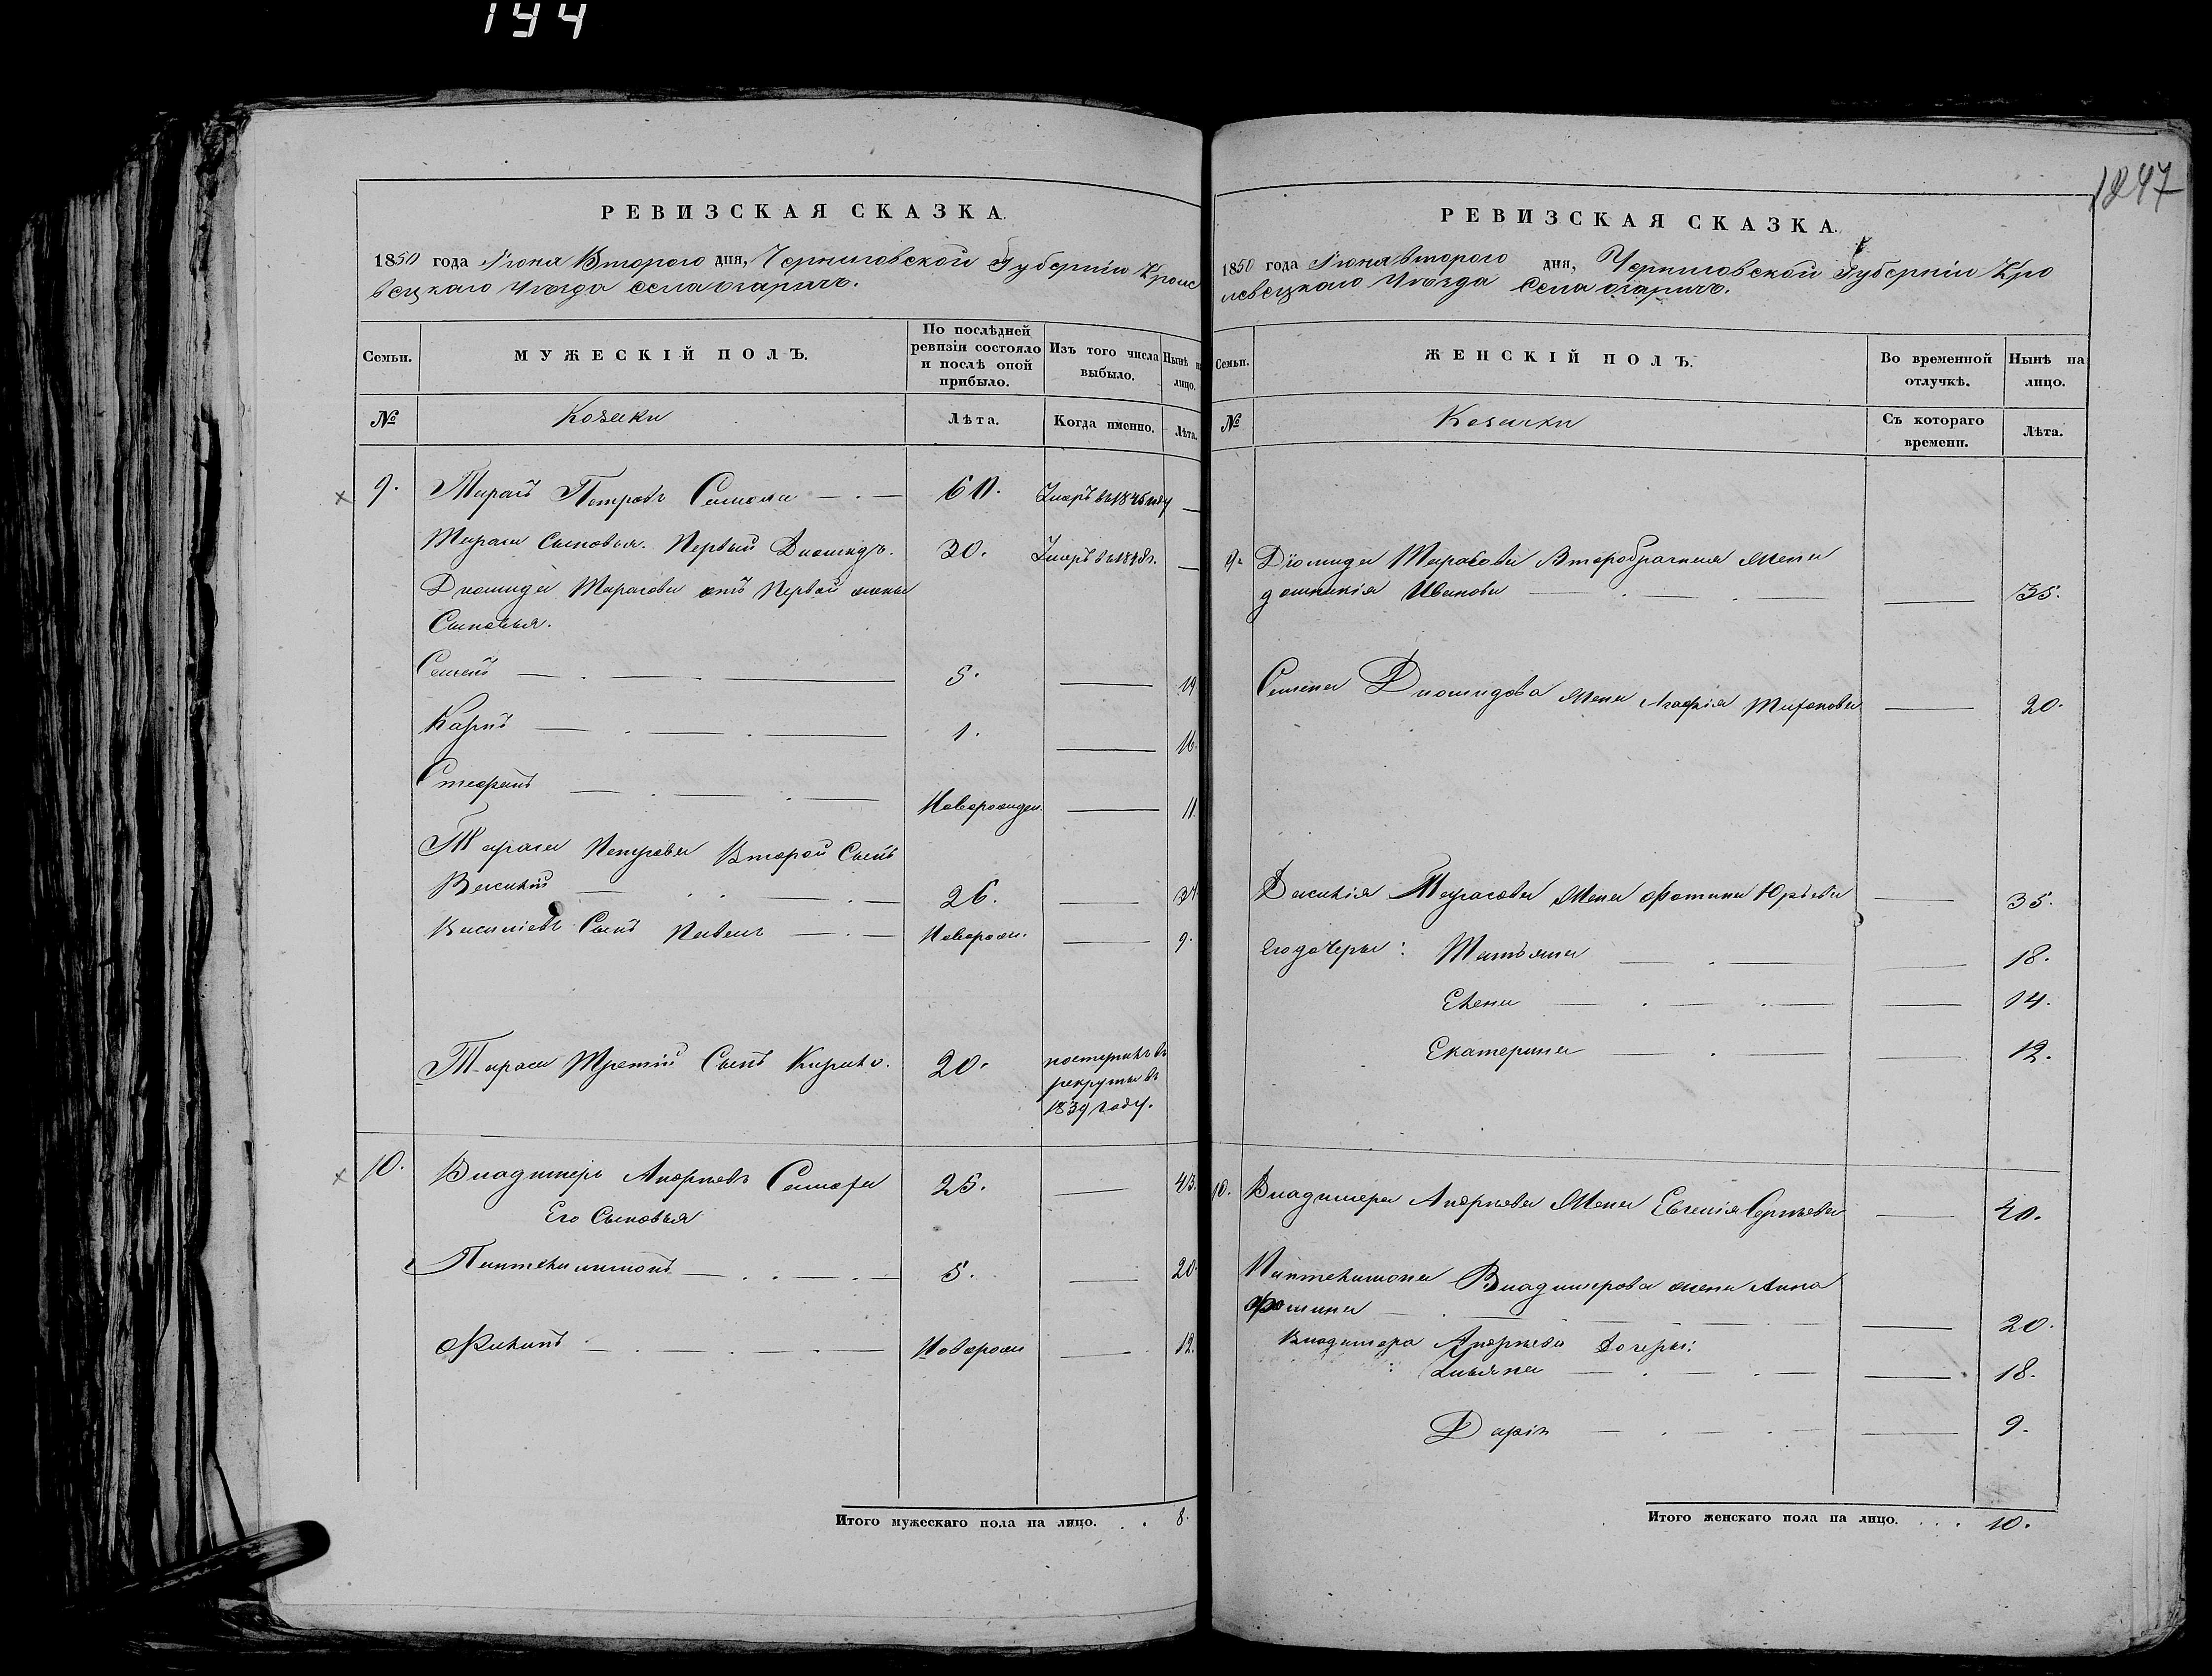 194
1847
РЕВИЗСКАЯ СКАЗКА.
1850 года Іюня Второго дня, Черниговской Губерніи Кроле
вецкаго Уѣзда села огаричъ.
Семьи.
МУЖЕСКІЙ ПОЛЪ.
По послѣдней ревизіи состояло и послѣ оной прибыло.
Изъ того числа выбыло.
Нынѣ на лицо.
№
Козаки
Лѣта.
Когда именно.
Лѣта.
9. Тарасъ Петровъ 60. Умеръ въ 1845 году
Тараса Сыновья. Первый Диомидъ. 30. Умеръ въ 1848г.
Диомида Тарасова отъ Первой жены
Сыновья.
Семенъ 5. 19
Карпъ 1. 16.
Стефанъ Новорожден. 11.
Тараса Петрова Второй Сынъ
Василій 26.
Василіевъ Сынъ Павелъ Новорож. 9.
Тараса Третій Сынъ Кирило. 20. поступилъ въ
рекруты въ
1839 году.
10. Владимеръ Андреевъ 25. 43.
Его Сыновья
Пантелимонъ 5. 20.
Филипъ Новорож 12.
Итого мужескаго пола на лицо. . . 8.
РЕВИЗСКАЯ СКАЗКА.
1850 года Іюня второго дня, Черниговской Губерніи Кро
левецкаго Уѣзда Села огаричъ.
Семьи.
ЖЕНСКІЙ ПОЛЪ.
Во временной отлучкѣ.
Нынѣ на лицо.
№
Козачки
Съ котораго времени.
Лѣта.
9. Діомида Тарасова Второбрачная Жена
домникія Иванова 35.
Семена Диомидова Жена Агафія 20.
Василія Тарасова Жена Фотина Юрьева 35.
Его дочеры: Татьяна 18.
Елена 14.
Екатерина 12.
10. Владимера Андреева Жена Евгенія Сергѣева 40.
Пантелимона Владимерова жена Анна
Фомина 20.
Владимера Андреева Дочеры:
Ульяна 18.
Дарія 9.
Итого женскаго пола на лицо. . . . 10.